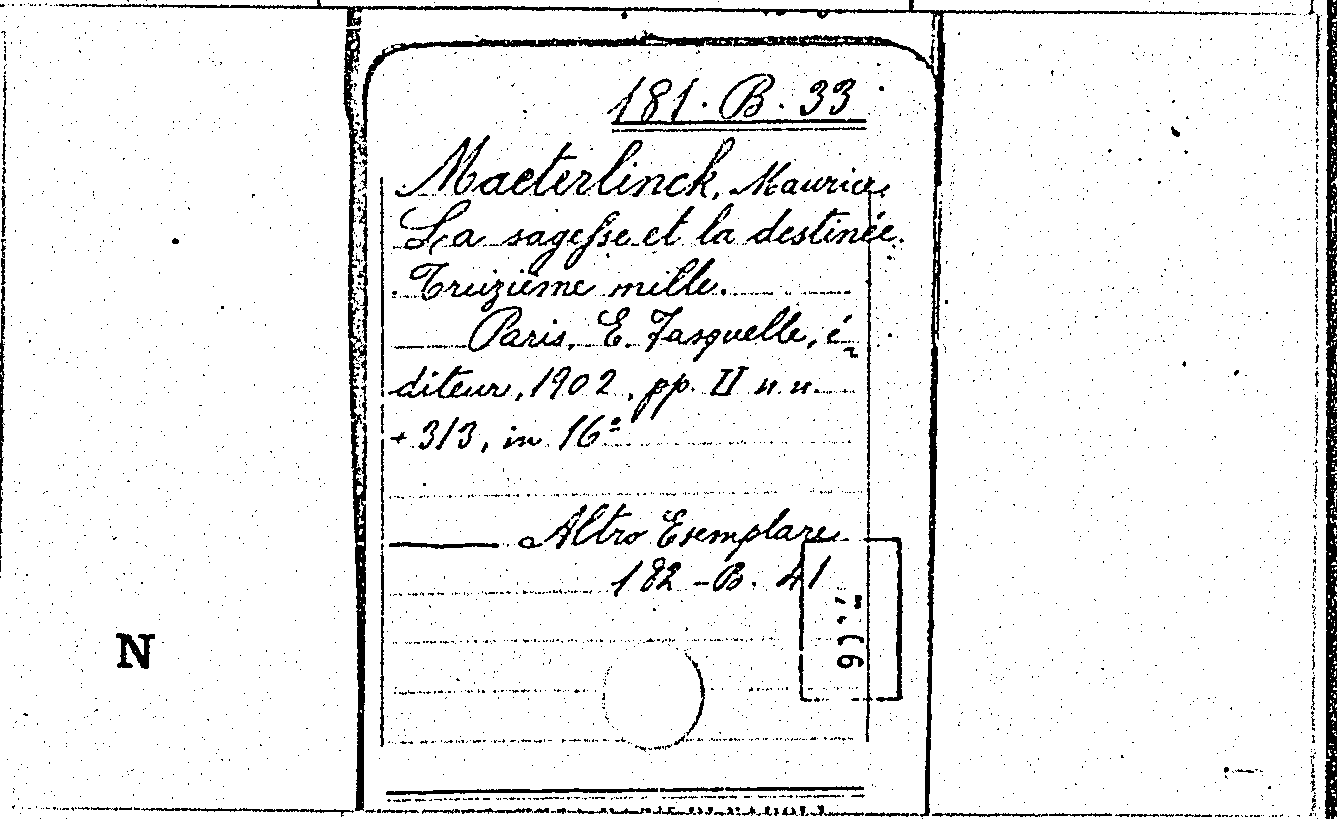 181. B. 33
Maeterlinck, Maurice,
La sagesse et la destinée.
Treizième mille.
Paris, E. Fasquelle, é-
diteur, 1902, pp. II n. n.
+ 313, in 16°
Altro Esemplare
182 - B. 41
N